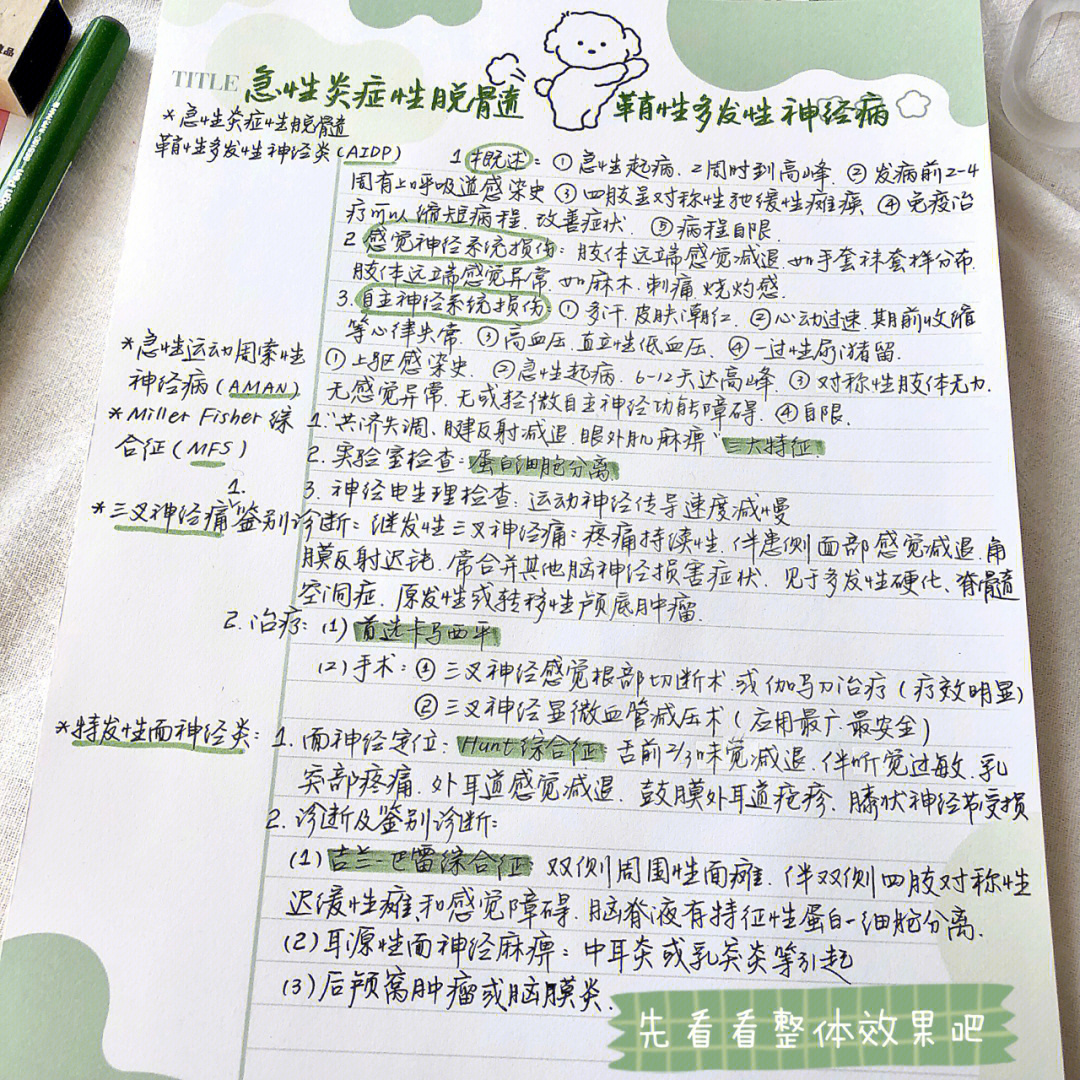 TITLE 急性炎症性脱骨遗 鞘性多发性神经病
*急性炎症性脱骨遗
鞘性多发性神经炎(AIDP)
1概述:①急性起病.2周时到高峰.②发病前2-4
周有上呼吸道感染史③四肢显对称性弛缓性瘫痪④免疫治
疗可以缩短病程.改善症状.⑤病程自限.
2感觉神经系统损伤:肢体远端感觉减退.如手套袜套样分布.
肢体远端感觉异常.如麻木.刺痛.烧灼感.
3.自主神经系统损伤:①多汗.皮肤潮红.②心动过速.期前收缩
等心律失常.③高血压.直立性低血压.④一过性尿潴留.
*急性运动周索性
神经病(AMAN)
①上驱感染史.②急性起病.6-12天达高峰.③对称性肢体无力.
无感觉异常.无或轻微自主神经功能障碍.④自限.
*Miller Fisher综
合征(MFS)
1."共济失调、腱反射减退.眼外肌麻痹"三大特征.
2.实验室检查:蛋白细胞分离.
3.神经电生理检查:运动神经传导速度减慢
*三叉神经痛:
1.鉴别诊断:继发性三叉神经痛:疼痛持续性.伴患侧面部感觉减退.角
膜反射迟钝.常合并其他脑神经损害症状.见于多发性硬化、脊髓
空洞症.原发性或转移性颅底肿瘤.
2.治疗:(1)首选卡马西平
(2)手术:①三叉神经感觉根部切断术.或伽马刀治疗(疗效明显)
②三叉神经显微血管减压术(应用最广.最安全)
*特发性面神经炎:
1.面神经定位:Hunt综合征:舌前2/3味觉减退.伴听觉过敏.乳
突部疼痛.外耳道感觉减退.鼓膜外耳道疱疹.膝状神经节受损
2.诊断及鉴别诊断:
(1)吉兰-巴雷综合征:双侧周围性面瘫.伴双侧四肢对称性
迟缓性瘫和感觉障碍.脑脊液有特征性蛋白-细胞分离.
(2)耳源性面神经麻痹:中耳炎或乳突炎等引起
(3)后颅窝肿瘤或脑膜炎.
先看看整体效果吧